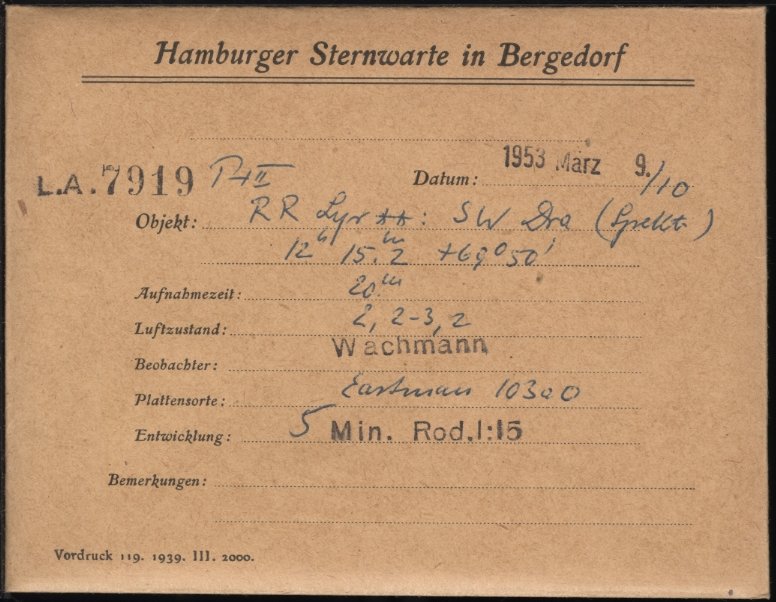 Hamburger Sternwarte in Bergedorf
L.A. 7919 P+II Datum: 1953 März 9./10
Objekt: RR Lyr **: SW Dra (Spektr.)
12h 15.m2 +69°50'
Aufnahmezeit: 20m
Luftzustand: 2, 2-3, 2
Beobachter: Wachmann
Plattensorte: Eastman 103aO
Entwicklung: 5 Min. Rod.1:15
Bemerkungen:
Vordruck 119. 1939. III. 2000.